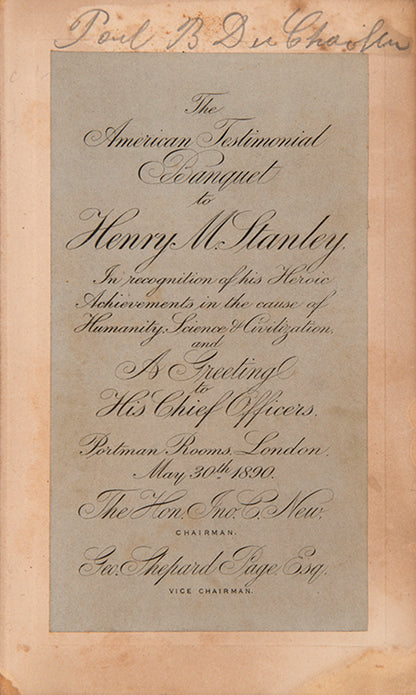 Paul B Du Chaillu
The
American Testimonial
Banquet
to
Henry M. Stanley.
In recognition of his Heroic
Achievements in the cause of
Humanity, Science & Civilization,
and
A Greeting
to
His Chief Officers.
Portman Rooms, London.
May 30th 1890.
The Hon. Jno. C. New.
CHAIRMAN.
Geo. Shepard Page. Esq.
VICE CHAIRMAN.